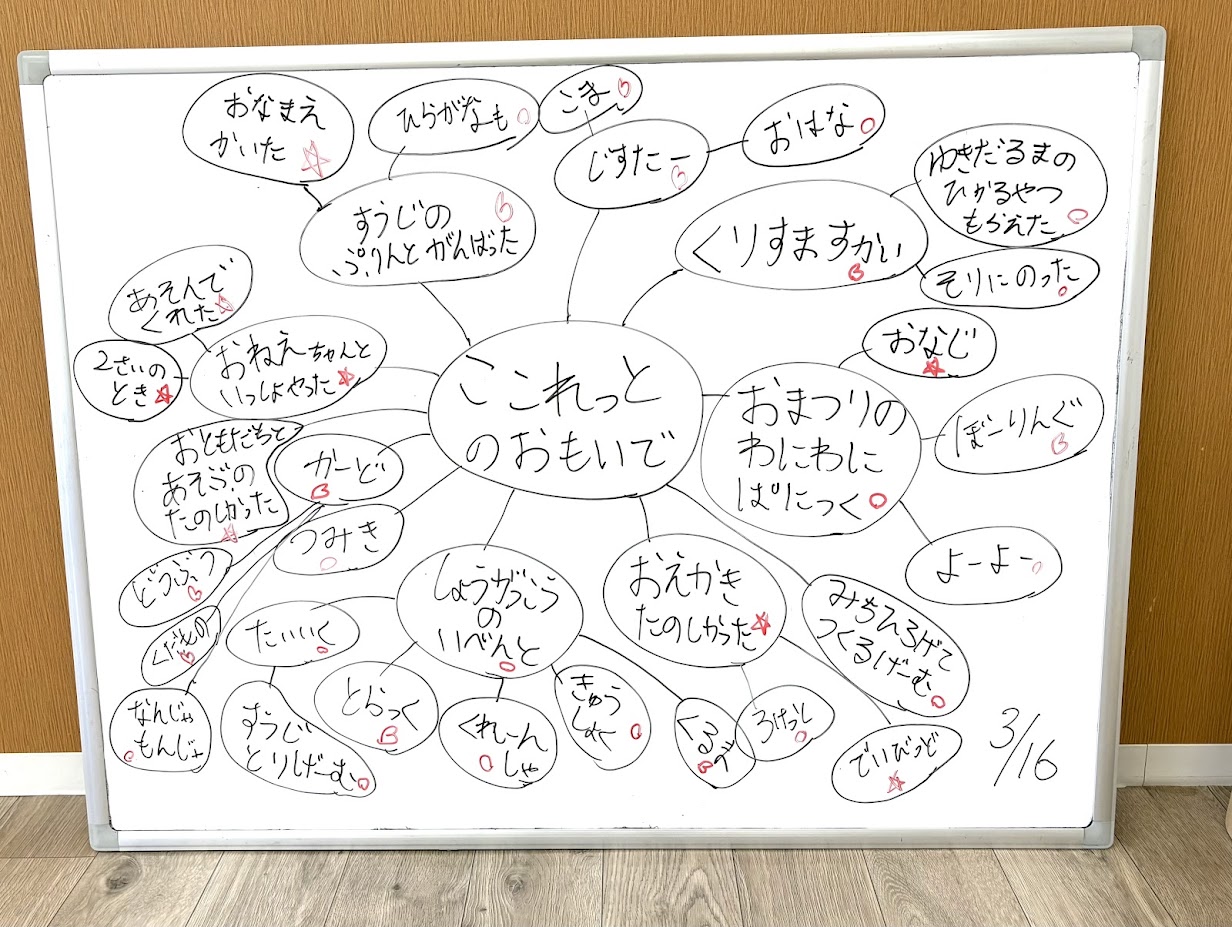 おなまえ
かいた
ひらがなも
こま
じすたー
おはな
ゆきだるまの
ひかるやつ
もらえた
すうじの
ぷりんとがんばった
くりすますかい
そりにのった
あそんで
くれた
2さいの
とき
おねえちゃんと
いっしょやった
ここれっと
のおもいで
おなじ
おまつりの
わにわに
ぱにっく
ぼーりんぐ
よーよー
おともだちと
あそぶの
たのしかった
かーど
つみき
どうぶつ
くだもの
なんじゃ
もんじゃ
しょうがっこう
の
いべんと
たいいく
すうじ
とりげーむ
とらっく
くれーん
しゃ
きゅう
しょく
おえかき
たのしかった
ろけっと
みちひろげて
つくるげーむ
でいびっど
3/16